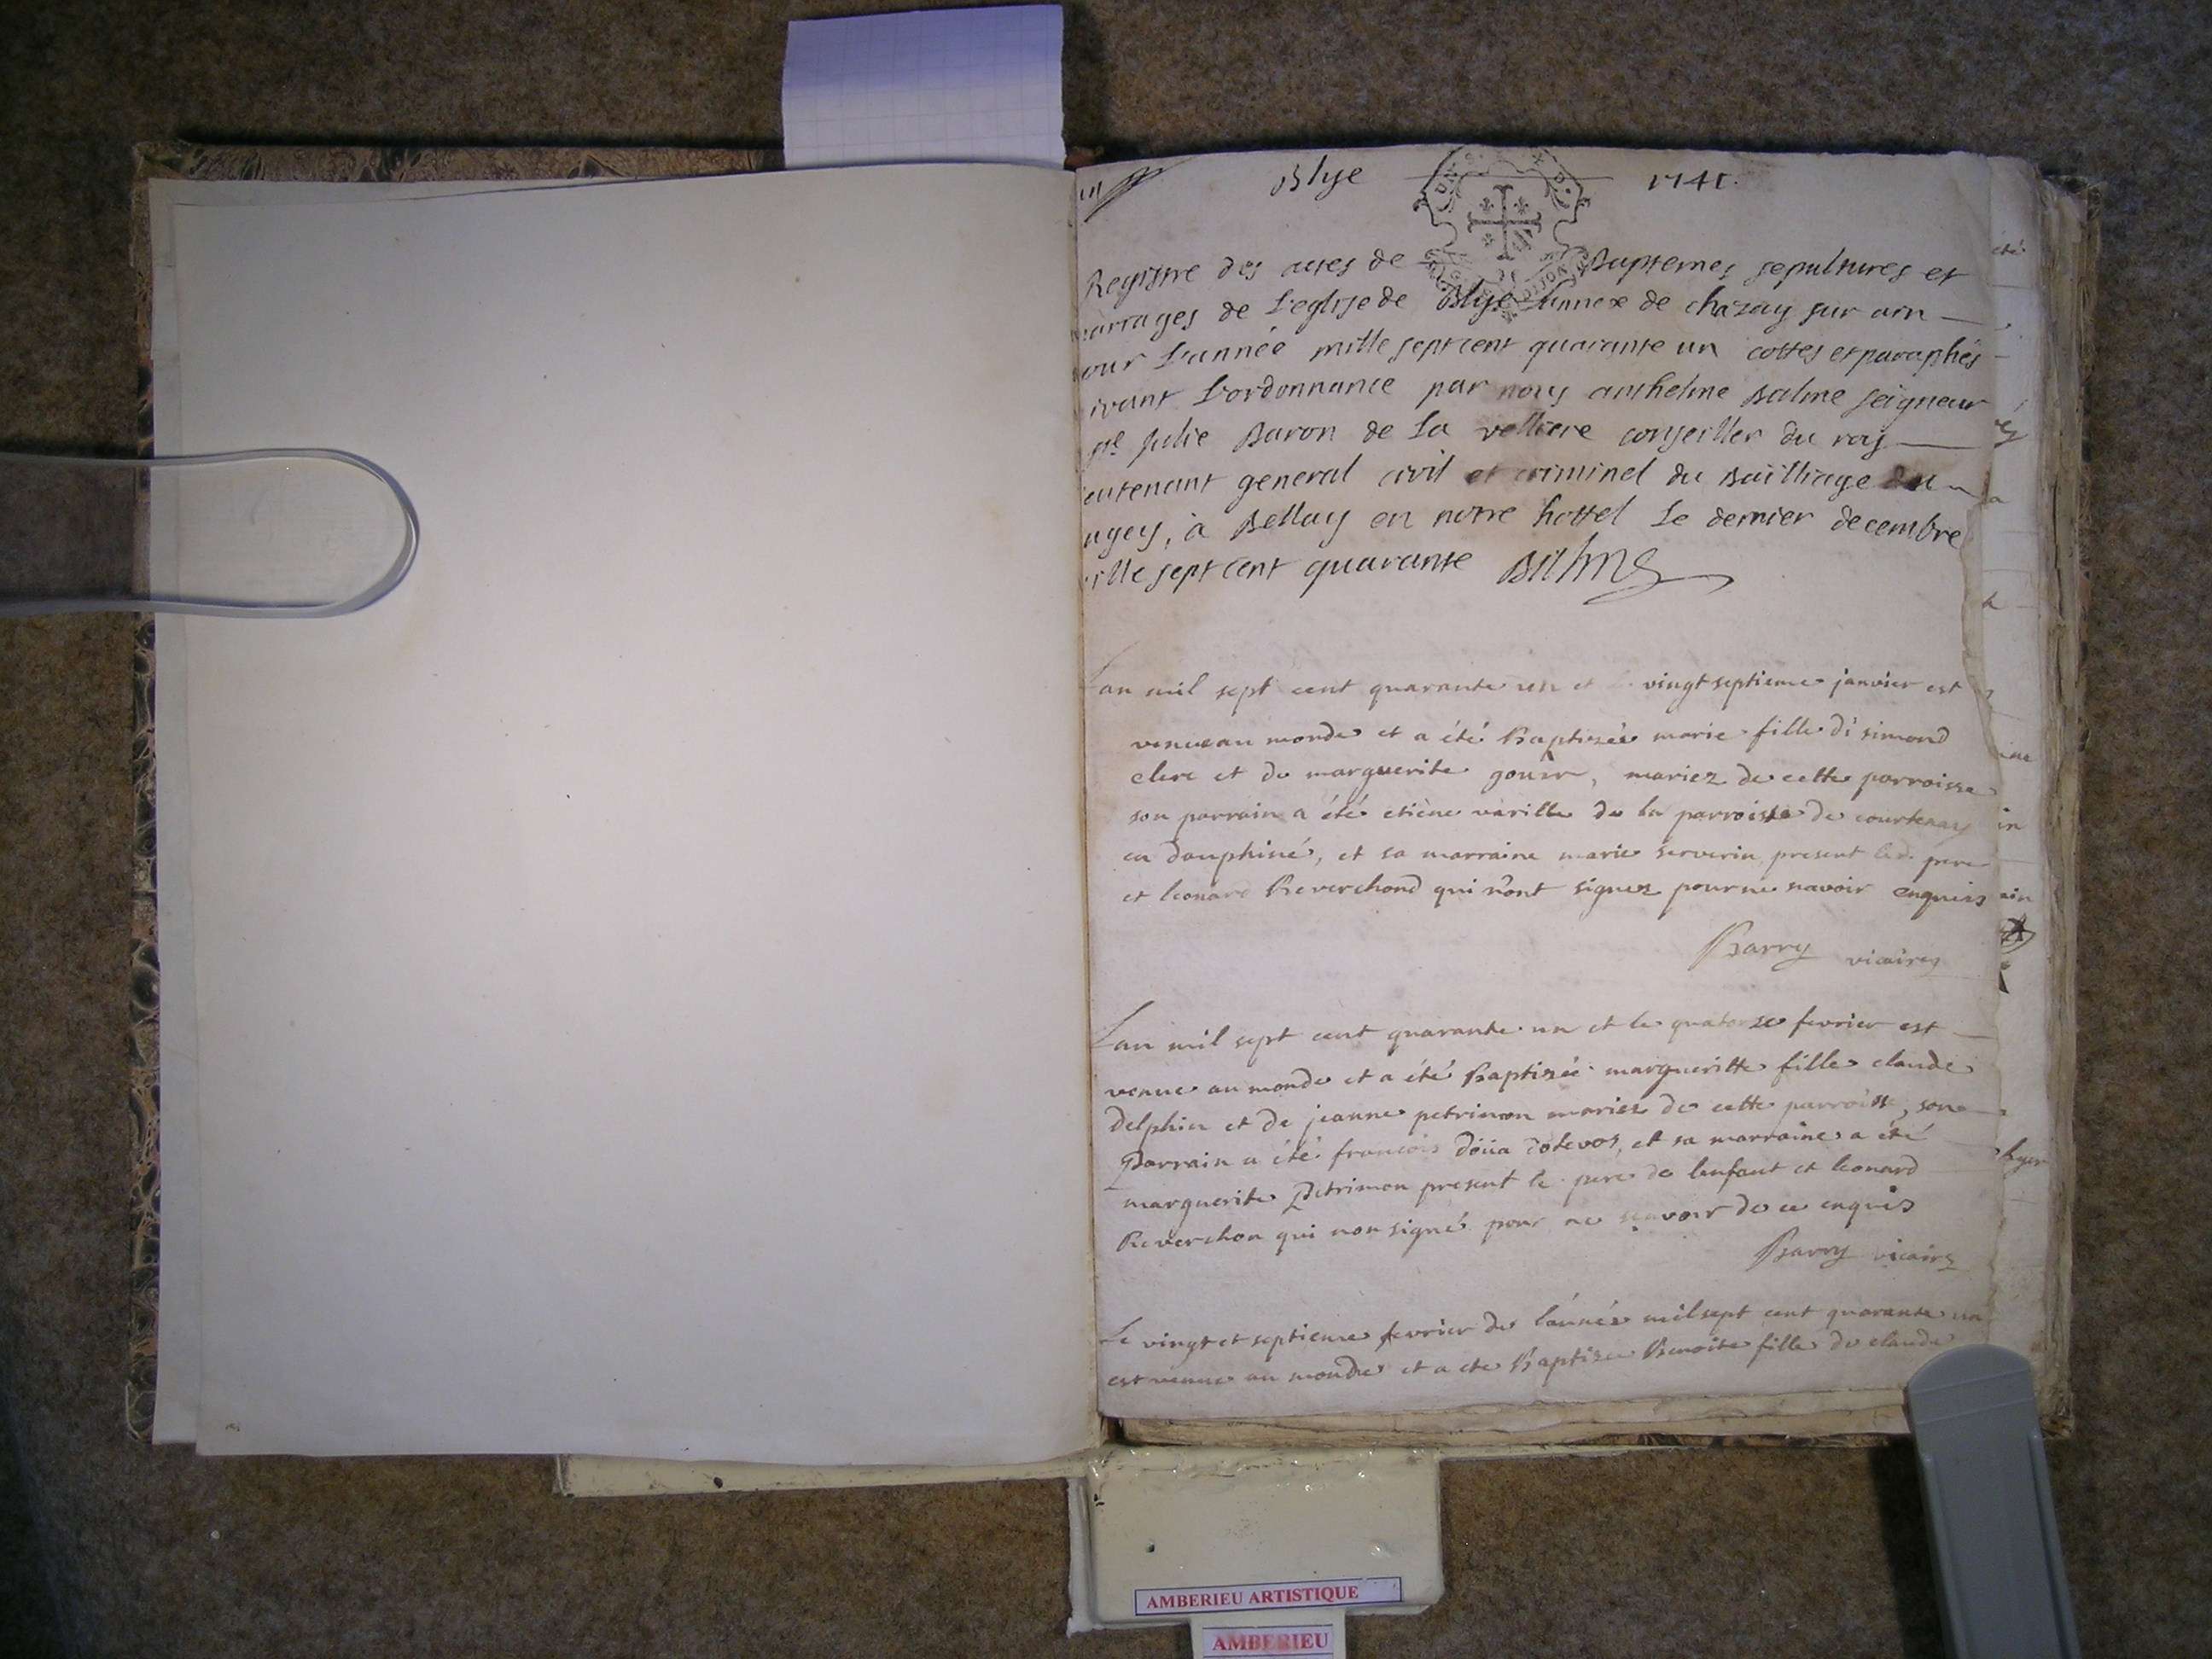 Blye 1741.
Registre des actes de Baptemes sepultures et
mariages de L'eglise de Blye annexe de chazay sur ain
pour L'année mille sept cent quarante un cottes et paraphés
suivant L'ordonnance par nous anthelme Balme seigneur
de ste Julie Baron de La velliere conseiller du roy
lieutenant general civil et criminel du Bailliage du
Bugey, à Bellay en notre hottel Le dernier decembre
mille sept cent quarante Balme
Lan mil sept cent quarante un et le vingt septieme janvier est
venue au monde et a été Baptisée marie fille di simond
clerc et de marguerite gouir, mariez de cette parroisse
son parrain a été etiène varille de la parroisse de courtenay
en dauphiné, et sa marraine marie serverin present led. pere
et leonard Reverchond qui n'ont signez pour ne savoir enquis
Barry vicaire
Lan mil sept cent quarante un et le quatorze fevrier est
venue au monde et a été Baptisée margueritte fille claude
delphin et de jeanne petrimon mariez de cette parroisse, son
Parrain a été francois doüa et sa marraine a été
marguerite Petrimon present le pere de lenfant et leonard
Reverchon qui non signé pour ne scavoir de ce enquis
Barry vicaire
Le vingt et septieme fevrier de lánnée mil sept cent quarante un
est venue au monde et a ete Baptisee Benoite fille de claude
AMBERIEU ARTISTIQUE
AMBERIEU